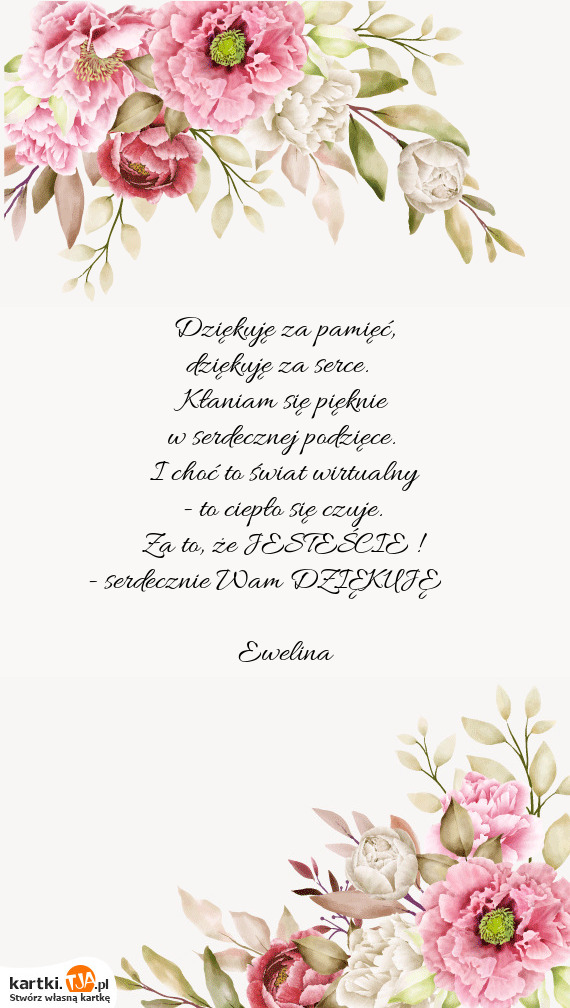 Dziękuję za pamięć,
dziękuję za serce.
Kłaniam się pięknie
w serdecznej podzięce.
I choć to świat wirtualny
- to ciepło się czuje.
Za to, że JESTEŚCIE !
- serdecznie Wam DZIĘKUJĘ
Ewelina
kartki.TJA.pl
Stwórz własną kartkę